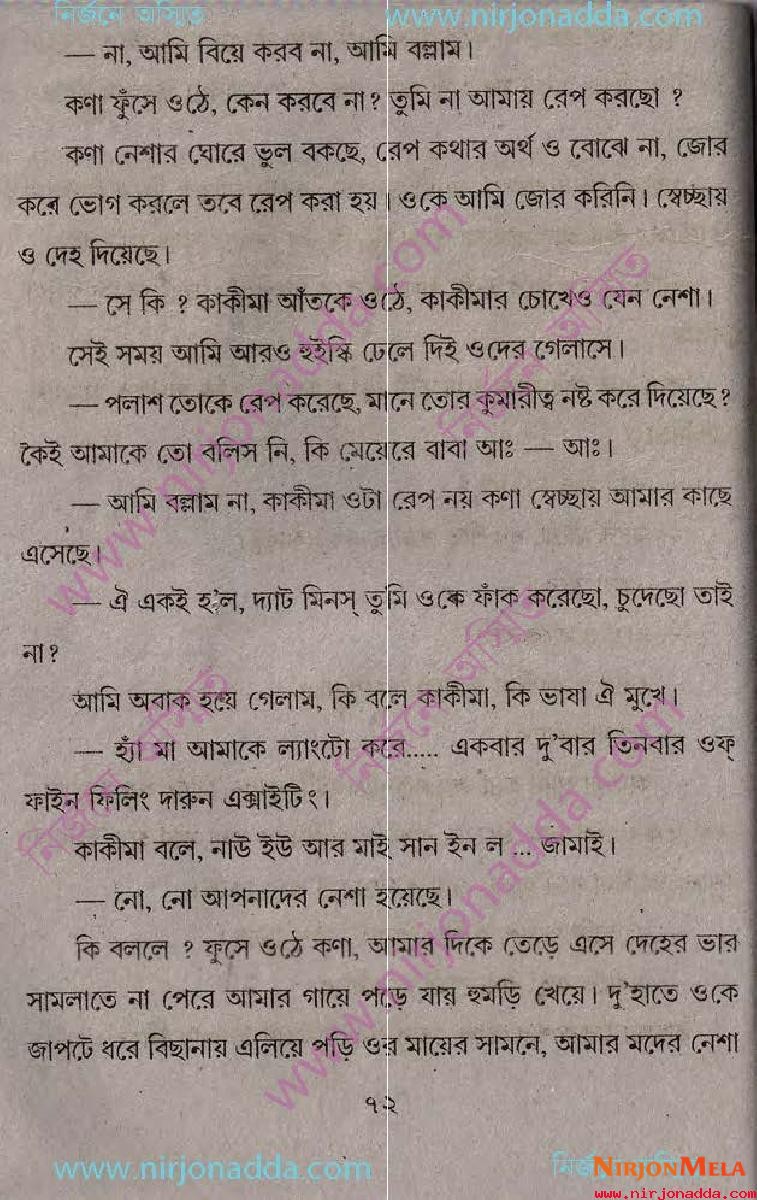 নির্জনে অস্মিত
www.nirjonadda.com
— না, আমি বিয়ে করব না, আমি বল্লাম।
কণা ফুঁসে ওঠে, কেন করবে না? তুমি না আমায় রেপ করছো ?
কণা নেশার ঘোরে ভুল বকছে, রেপ কথার অর্থ ও বোঝে না, জোর
করে ভোগ করলে তবে রেপ করা হয়। ওকে আমি জোর করিনি। স্বেচ্ছায়
ও দেহ দিয়েছে।
— সে কি ? কাকীমা আঁতকে ওঠে, কাকীমার চোখেও যেন নেশা।
সেই সময় আমি আরও হুইস্কি ঢেলে দিই ওদের গেলাসে।
— পলাশ তোকে রেপ করেছে, মানে তোর কুমারীত্ব নষ্ট করে দিয়েছে?
কৈই আমাকে তো বলিস নি, কি মেয়েরে বাবা আঃ — আঃ।
— আমি বল্লাম না, কাকীমা ওটা রেপ নয় কণা স্বেচ্ছায় আমার কাছে
এসেছে।
— ঐ একই হ'ল, দ্যাট মিনস্ তুমি ওকে ফাঁক করেছো, চুদেছো তাই
না?
আমি অবাক হয়ে গেলাম, কি বলে কাকীমা, কি ভাষা ঐ মুখে।
— হ্যাঁ মা আমাকে ল্যাংটো করে..... একবার দু'বার তিনবার ওফ্
ফাইন ফিলিং দারুন এক্সাইটিং।
কাকীমা বলে, নাউ ইউ আর মাই সান ইন ল ... জামাই।
— নো, নো আপনাদের নেশা হয়েছে।
কি বললে ? ফুসে ওঠে কণা, আমার দিকে তেড়ে এসে দেহের ভার
সামলাতে না পেরে আমার গায়ে পড়ে যায় হুমড়ি খেয়ে। দু'হাতে ওকে
জাপটে ধরে বিছানায় এলিয়ে পড়ি ওর মায়ের সামনে, আমার মদের নেশা
৭২
www.nirjonadda.com
নির্জনে
NIRJONMELA
www.nirjonadda.com